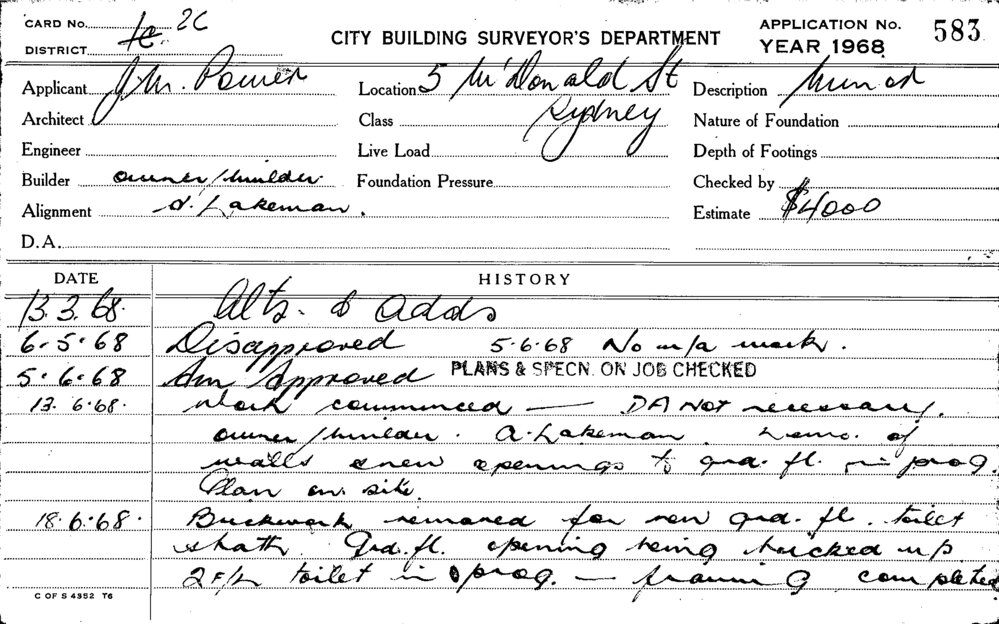 CARD No. 2C
DISTRICT
CITY BUILDING SURVEYOR'S DEPARTMENT
APPLICATION No. 583
YEAR 1968
Applicant J.M. Power Location 5 McDonald St Description
Architect Class Sydney Nature of Foundation
Engineer Live Load Depth of Footings
Builder owner/builder Foundation Pressure Checked by
Alignment A. Lakeman. Estimate $4000
D.A.
DATE HISTORY
13.3.68. Alts. & Adds
6.5.68 Disapproved 5.6.68 No n/a work.
5.6.68 Am Approved PLANS & SPECN. ON JOB CHECKED
13.6.68. Work commenced — DA Not necessary.
owner/builder. A. Lakeman. Demo. of
walls & new openings to grd. fl. in prog.
Plan on site.
18.6.68. Brickwork removed for new grd. fl. toilet
& bath. Grd. fl. opening being bricked up
toilet in prog. — framing completed
C OF S 4352 T6